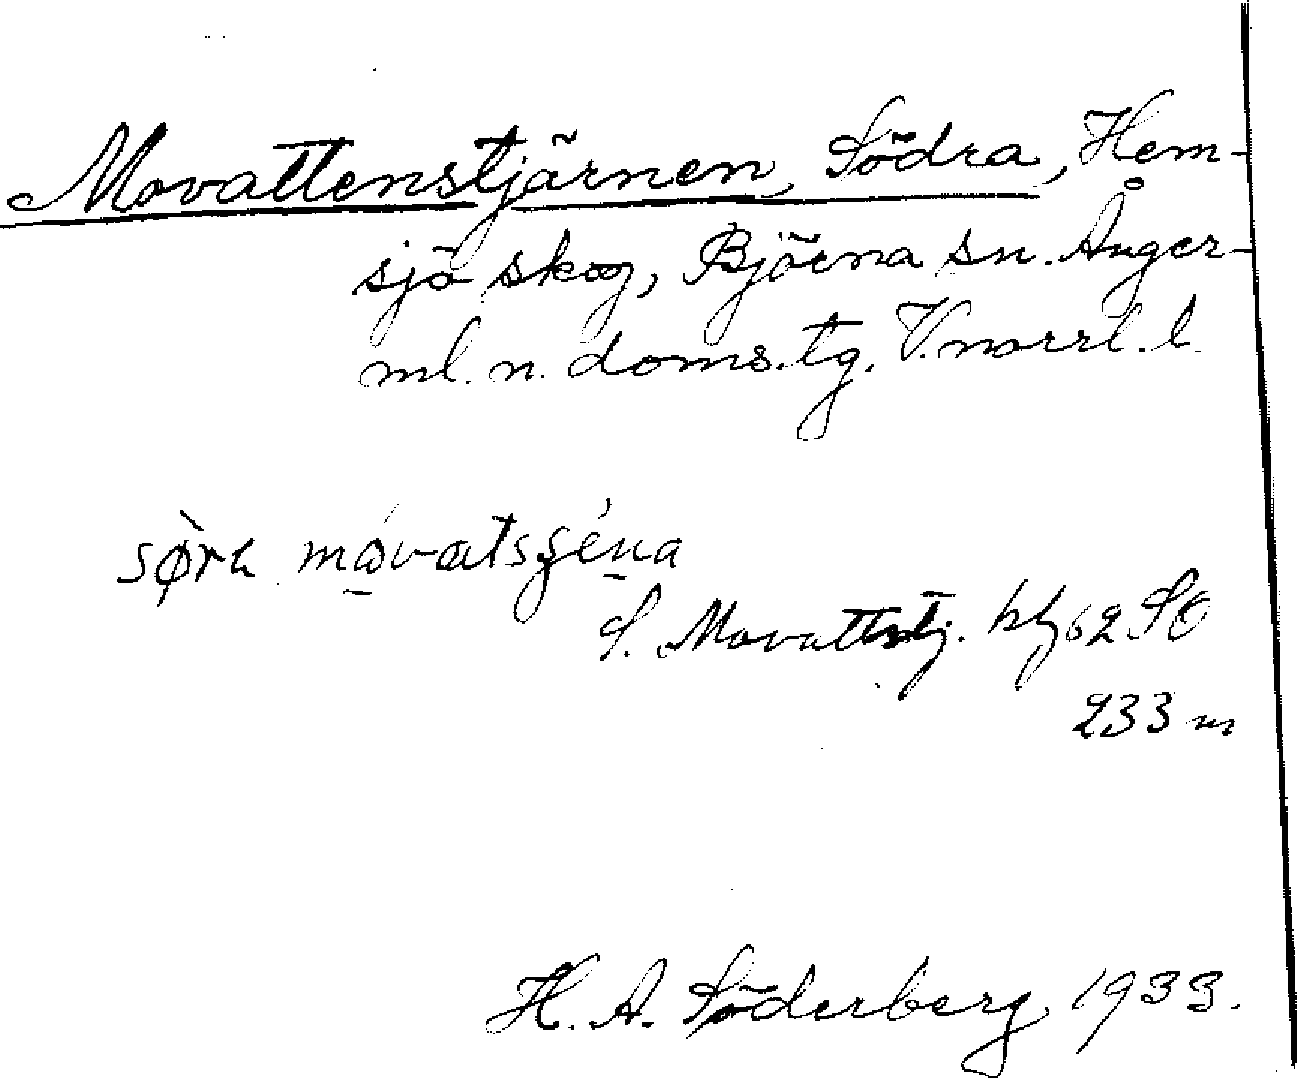 Movattenstjärnen, Södra, Hem-
sjö skog, Björna sn. Ånger-
ml. n. doms. tg. V.norrl. l.
sø̀rɩ mó̱vatsʃén̲a
S. Movattstj. bl 62 SO
233 m
H. A. Söderberg 1933.